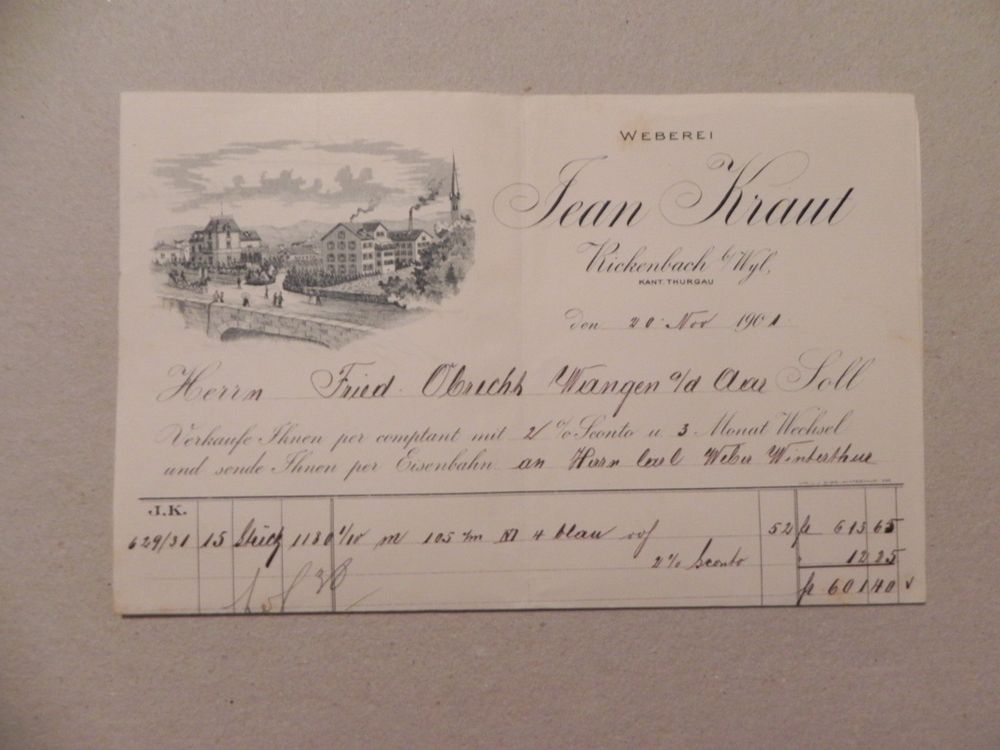 WEBEREI
Jean Kraut
Rickenbach b/Wyl,
KANT. THURGAU
den 20. Nov 1901.
Herrn Fried. Obrecht Wangen a/d Aar Soll
Verkaufe Ihnen per comptant mit 2 % Sconto u 3 Monat Wechsel
und sende Ihnen per Eisenbahn an Herrn Carl Weber Winterthur
J.K.
629/31 15 Stück 1180 1/10 m 105 c/m XI 4 blau 52 fr 613 65
2% Sconto 12 25
fr 601 40